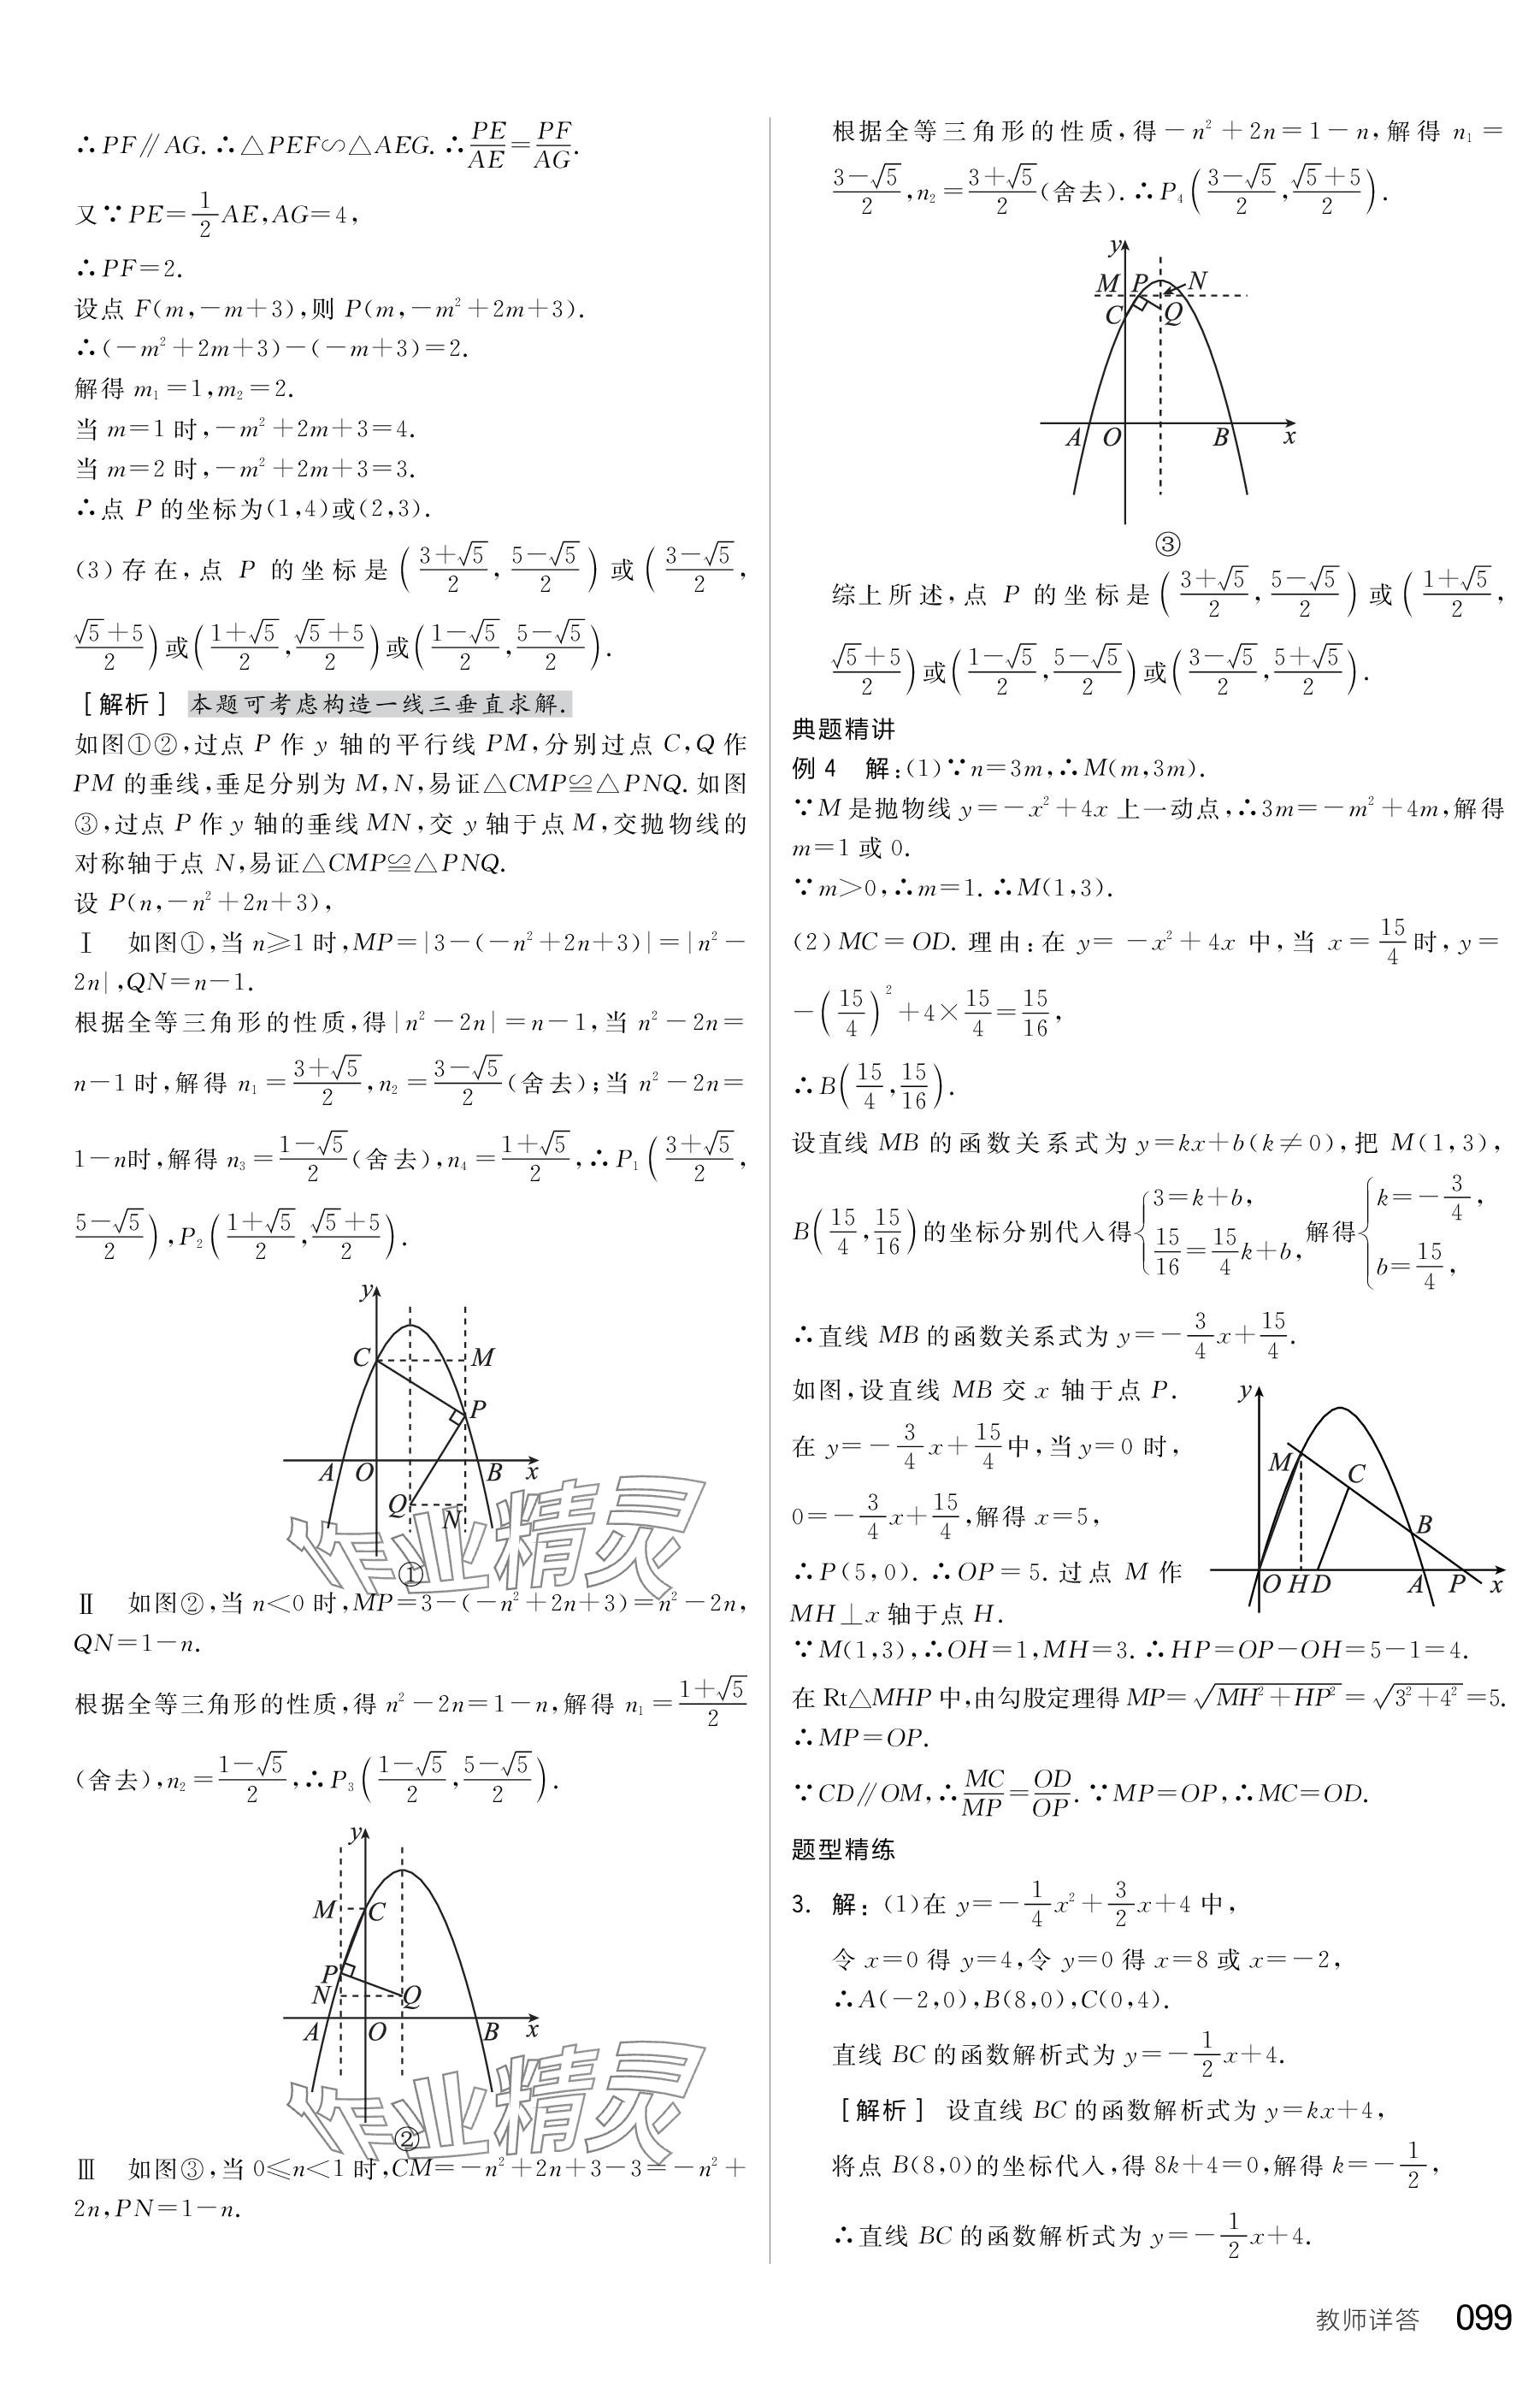 ∴PF∥AG.∴△PEF∽△AEG.∴PE/AE=PF/AG.
又∵PE=1/2AE,AG=4,
∴PF=2.
设点 F(m,-m+3),则 P(m,-m²+2m+3).
∴(-m²+2m+3)-(-m+3)=2.
解得 m₁=1,m₂=2.
当 m=1 时,-m²+2m+3=4.
当 m=2 时,-m²+2m+3=3.
∴点 P 的坐标为(1,4)或(2,3).
(3)存在,点 P 的坐标是((3+√5)/2,(5-√5)/2)或((3-√5)/2,
(√5+5)/2)或((1+√5)/2,(√5+5)/2)或((1-√5)/2,(5-√5)/2).
[解析] 本题可考虑构造一线三垂直求解.
如图①②,过点 P 作 y 轴的平行线 PM,分别过点 C,Q 作
PM 的垂线,垂足分别为 M,N,易证△CMP≌△PNQ.如图
③,过点 P 作 y 轴的垂线 MN,交 y 轴于点 M,交抛物线的
对称轴于点 N,易证△CMP≌△PNQ.
设 P(n,-n²+2n+3),
Ⅰ 如图①,当 n≥1 时,MP=|3-(-n²+2n+3)|=|n²-
2n|,QN=n-1.
根据全等三角形的性质,得|n²-2n|=n-1,当 n²-2n=
n-1 时,解得 n₁=(3+√5)/2,n₂=(3-√5)/2(舍去);当 n²-2n=
1-n时,解得 n₃=(1-√5)/2(舍去),n₄=(1+√5)/2,∴P₁((3+√5)/2,
(5-√5)/2),P₂((1+√5)/2,(√5+5)/2).
y
C M
P
A O B x
Q N
①
作业精灵
Ⅱ 如图②,当 n<0 时,MP=3-(-n²+2n+3)=n²-2n,
QN=1-n.
根据全等三角形的性质,得 n²-2n=1-n,解得 n₁=(1+√5)/2
(舍去),n₂=(1-√5)/2,∴P₃((1-√5)/2,(5-√5)/2).
y
M C
P
N Q
A O B x
②
作业精灵
Ⅲ 如图③,当 0≤n<1 时,CM=-n²+2n+3-3=-n²+
2n,PN=1-n.
根据全等三角形的性质,得-n²+2n=1-n,解得 n₁=
(3-√5)/2,n₂=(3+√5)/2(舍去).∴P₄((3-√5)/2,(√5+5)/2).
y
M P N
C Q
A O B x
③
综上所述,点 P 的坐标是((3+√5)/2,(5-√5)/2)或((1+√5)/2,
(√5+5)/2)或((1-√5)/2,(5-√5)/2)或((3-√5)/2,(5+√5)/2).
典题精讲
例 4 解:(1)∵n=3m,∴M(m,3m).
∵M 是抛物线 y=-x²+4x 上一动点,∴3m=-m²+4m,解得
m=1 或 0.
∵m>0,∴m=1.∴M(1,3).
(2)MC=OD.理由:在 y=-x²+4x 中,当 x=15/4时,y=
-(15/4)²+4×15/4=15/16,
∴B(15/4,15/16).
设直线 MB 的函数关系式为 y=kx+b(k≠0),把 M(1,3),
B(15/4,15/16)的坐标分别代入得{3=k+b, 15/16=15/4k+b,解得{k=-3/4, b=15/4,
∴直线 MB 的函数关系式为 y=-3/4x+15/4.
如图,设直线 MB 交 x 轴于点 P.
在 y=-3/4x+15/4中,当y=0 时,
0=-3/4x+15/4,解得 x=5,
∴P(5,0).∴OP=5.过点 M 作
MH⊥x 轴于点 H.
y
M C
B
O H D A P x
∵M(1,3),∴OH=1,MH=3.∴HP=OP-OH=5-1=4.
在 Rt△MHP 中,由勾股定理得 MP=√(MH²+HP²)=√(3²+4²)=5.
∴MP=OP.
∵CD∥OM,∴MC/MP=OD/OP.∵MP=OP,∴MC=OD.
题型精练
3. 解:(1)在 y=-1/4x²+3/2x+4 中,
令 x=0 得 y=4,令 y=0 得 x=8 或 x=-2,
∴A(-2,0),B(8,0),C(0,4).
直线 BC 的函数解析式为 y=-1/2x+4.
[解析] 设直线 BC 的函数解析式为 y=kx+4,
将点 B(8,0)的坐标代入,得 8k+4=0,解得 k=-1/2,
∴直线 BC 的函数解析式为 y=-1/2x+4.
教师详答 099